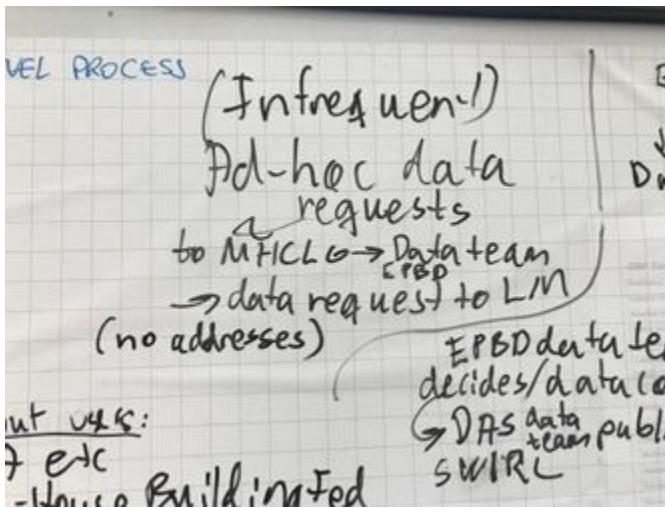 VEL PROCESS
(Infrequent)
Ad-hoc data
requests
to MHCLG → Data team
EPBD
→ data request to LM
(no addresses)
EPBD data te
decides/data co
→ DAS data team publ
SWIRL
etc
-House Building Fed